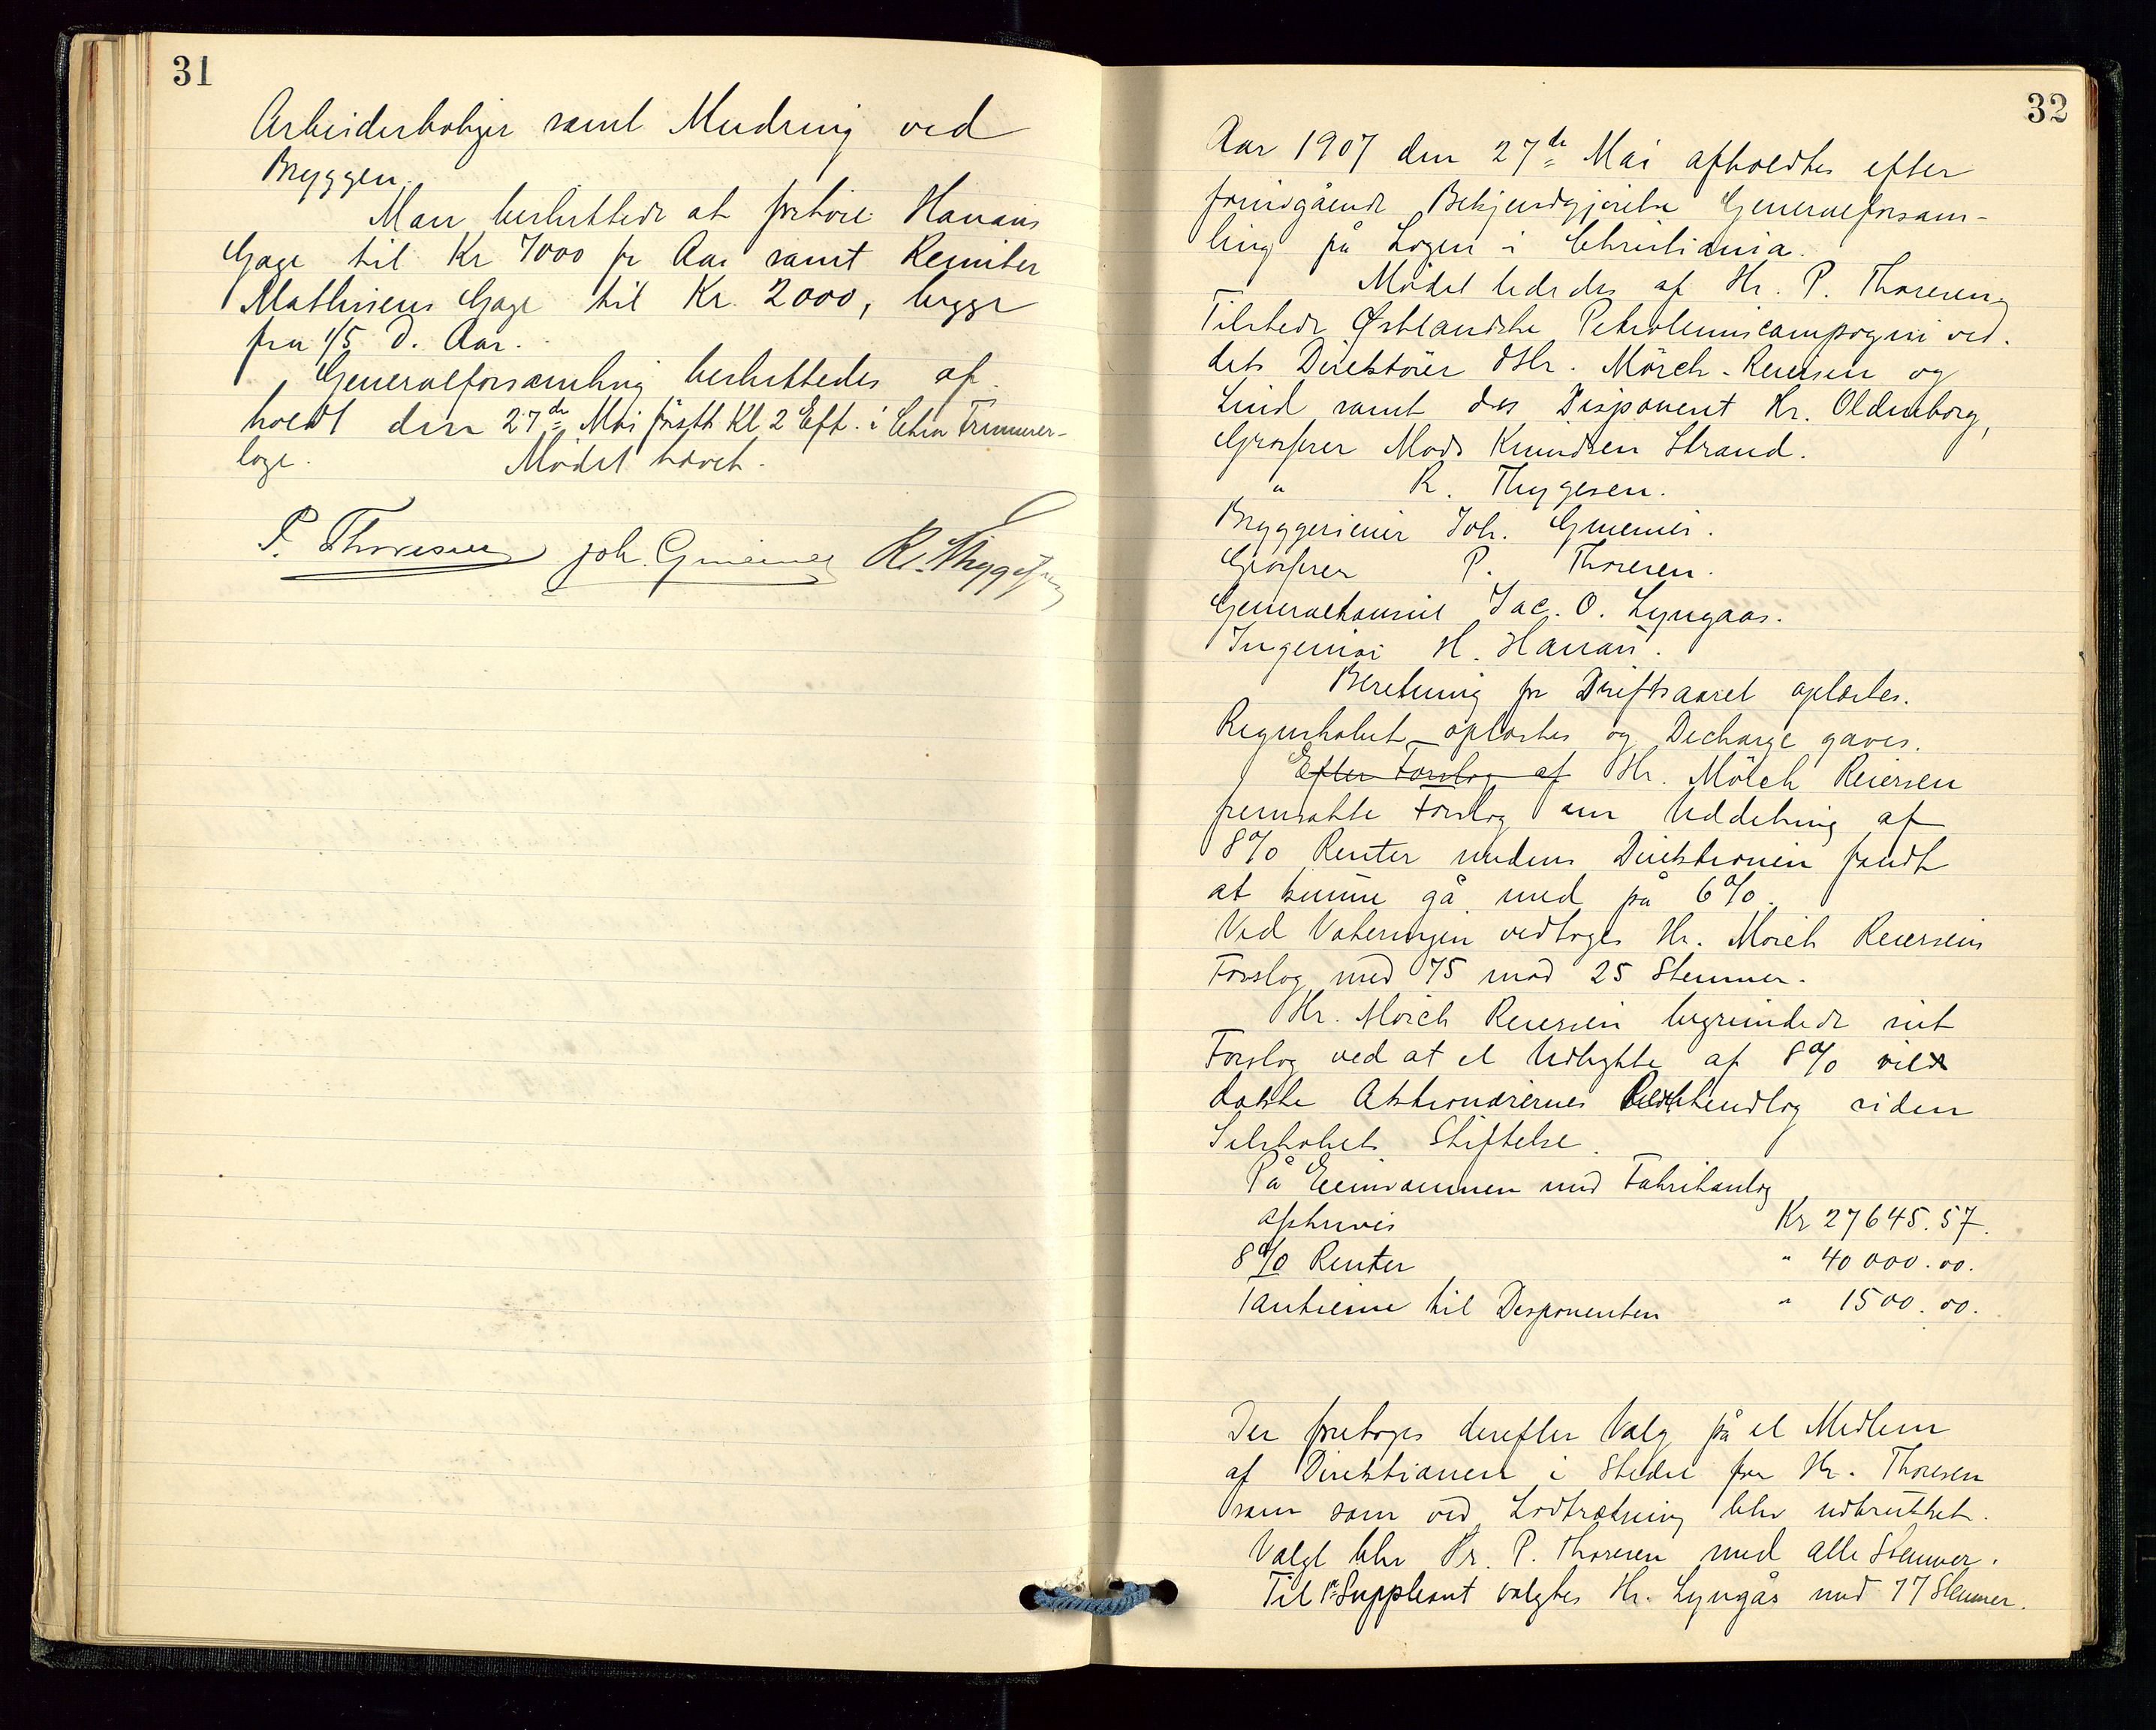 31
Arbeiderboliger samt Mudring ved
Bryggen.
Man besluttede at forhöie Hanans
Gage til Kr 7000 pr Aar samt Kemiker
Mathisens Gage til Kr. 2000, begge
fra 1/5 d. Aar.
Generalforsamling besluttedes af-
holdt den 27de Mai förstk Kl 2 Eft. i Chra Frimurer-
loge. Mödet hævet.
P. Thoresen Joh. Gmeiner R. Thygesen
32
Aar 1907 den 27de Mai afholdtes efter
foregående Bekjendtgjörelse Generalforsam-
ling på Logen i Christiania.
Mödet lededes af Hr. P. Thoresen,
Tilstede Østlandske Petroleumscompagni ved
dets Direktörer dHr. Mörch-Reiersen og
Lind samt des Disponent Hr. Oldenborg,
Grosserer Mads Knudsen Strand.
" R. Thygesen.
Bryggerieier Joh. Gmeiner.
Grosserer P. Thoresen.
Generalkonsul Jac. O. Lyngaas.
Ingeniör H. Hanan.
Beretning for Driftsaaret oplæstes.
Regnskabet oplæstes og Decharge gaves.
Efter Forslag af Hr. Mörch Reiersen
fremsatte Forslag om Uddeling af
8% Renter medens Direktionen fandt
at kunne gå med på 6%.
Ved Voteringen vedtoges Hr. Mörch Reiersens
Forslag med 75 mod 25 Stemmer.
Hr. Mörch Reiersen begrundede sit
Forslag ved at et Udbytte af 8% vil
dække Aktionærernes siden
Selskabets Stiftelse.
På Eiendommen med Fabrikanlæg
afskrives Kr 27645.57.
8% Renter " 40 000.00.
Tantieme til Disponenten " 1500.00.
Der foretoges derefter Valg på et Medlem
af Direktionen i Stedet for Hr. Thoresen
som som ved Lodtrækning blev udtrukket.
Valgt blev Hr. P. Thoresen med alle Stemmer.
Til 1ste Suppleant valgtes Hr. Lyngås med 77 Stemmer.